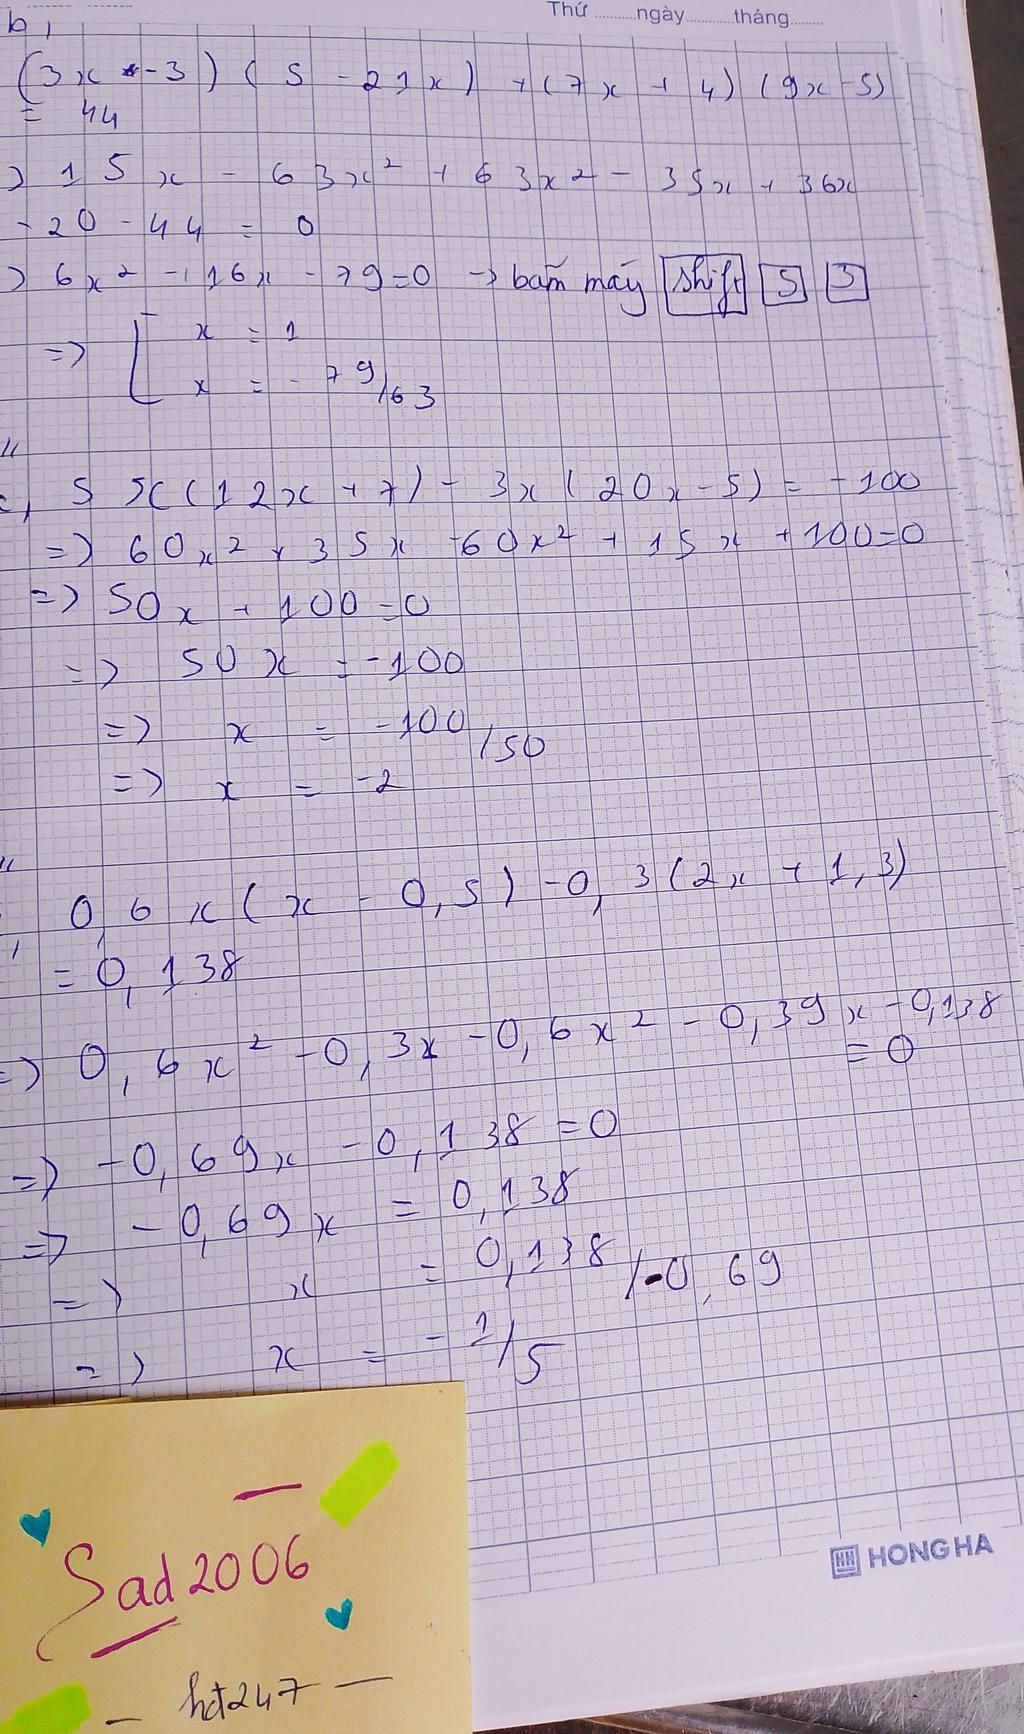 Thứ ........ngày........tháng........
b,
(3x - 3) ( 5 - 21x) + (7x + 4) (9x - 5)
= 44
=> 15x - 63x² + 63x² - 35x + 36x
- 20 - 44 = 0
=> 6x² + 16x - 79 = 0 -> bấm máy Shift 5 3
=> [ x = 1
x = - 79/63
c, 5x(12x + 7) - 3x(20x - 5) = -100
=> 60x² + 35x - 60x² + 15x + 100 = 0
=> 50x + 100 = 0
=> 50x = -100
=> x = -100/50
=> x = -2
0,6x(x - 0,5) - 0,3(2x + 1,3)
= 0,138
=> 0,6x² - 0,3x - 0,6x² - 0,39x - 0,138
= 0
=> -0,69x - 0,138 = 0
=> -0,69x = 0,138
=> x = 0,138/-0,69
=> x = - 1/5
HH HONG HA
Sad2006
- hdt247 -